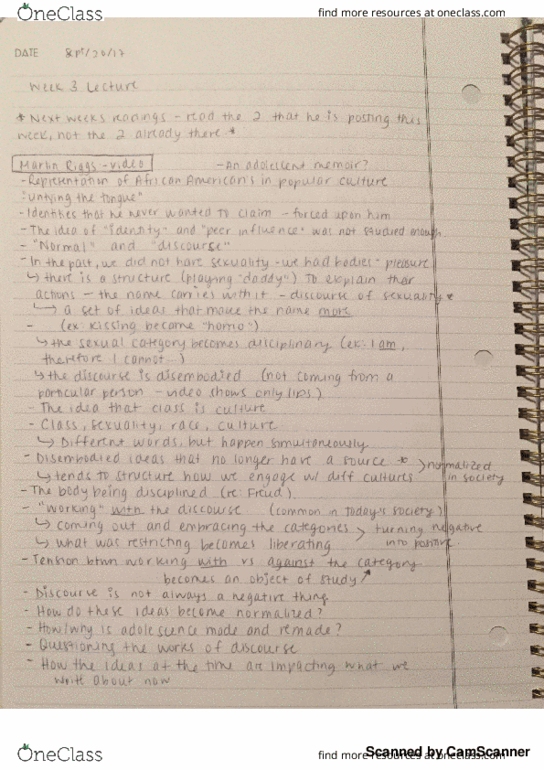 OneClass
find more resources at oneclass.com
DATE Sept/20/17
Week 3 Lecture
* Next weeks readings - read the 2 that he is posting this
week, not the 2 already there *
Marlin Riggs - video - An adolescent memoir?
- Representation of African American's in popular culture
"untying the tongue"
- Identities that he never wanted to claim - forced upon him
- The idea of "identity" and "peer influence" was not studied enough
- "Normal" and "discourse"
- In the past, we did not have sexuality - we had bodies + pleasure
↳ there is a structure (playing "daddy") to explain their
actions - the name carries with it - discourse of sexuality *
↳ a set of ideas that make the name more
- (ex: kissing became "homo")
↳ the sexual category becomes disciplinary (ex: I am,
therefore I cannot...)
↳ the discourse is disembodied (not coming from a
particular person - video shows only lips)
- The idea that class is culture
- Class, sexuality, race, culture
↳ Different words, but happen simultaneously
- Disembodied ideas that no longer have a source * > normalized
↳ tends to structure how we engage w/ diff cultures in society
- The body being disciplined (re: Freud)
- "working" with the discourse (common in today's society)
↳ coming out and embracing the categories > turning negative
↳ what was restricting becomes liberating into positive
- Tension btwn working with vs against the category
becomes an object of study ↗
- Discourse is not always a negative thing
- How do these ideas become normalized?
- How/why is adolescence made and remade?
- Questioning the works of discourse
- How the ideas at the time are impacting what we
write about now
OneClass
find more resources at oneclass.com
Scanned by CamScanner